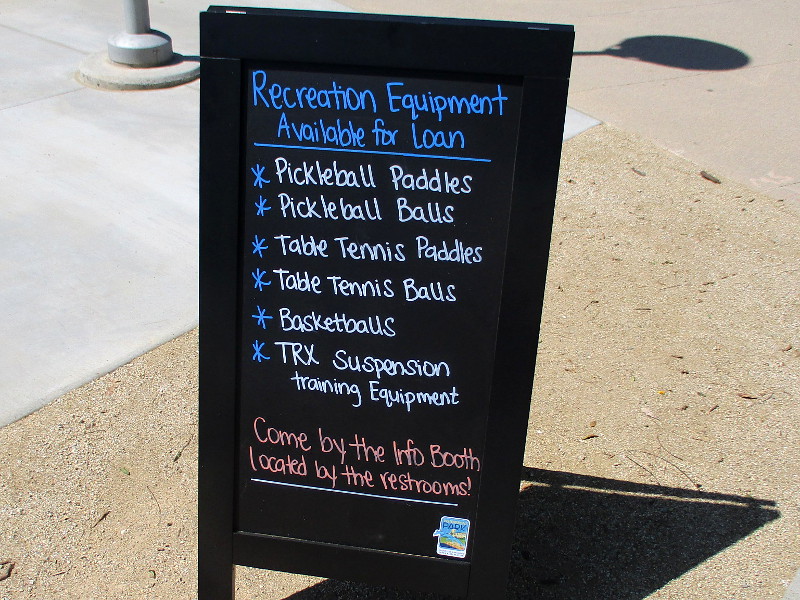 Recreation Equipment
Available for Loan
* Pickleball Paddles
* Pickleball Balls
* Table Tennis Paddles
* Table Tennis Balls
* Basketballs
* TRX Suspension
training Equipment
Come by the Info Booth
located by the restrooms!
PARK